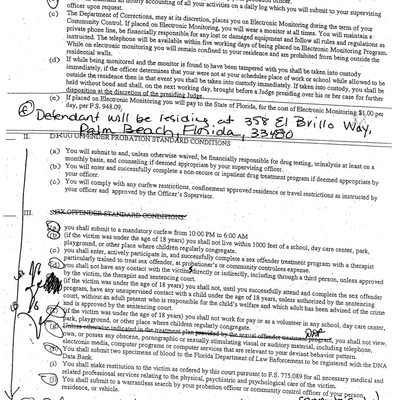 hourly accounting of all your activities on a daily log which you will submit to your supervising
officer upon request.
(c) The Department of Corrections, may at its discretion, places you on Electronic Monitoring during the term of your
Community Control. If placed on Electronic Monitoring, you will wear a monitor at all times. You will maintain a
private phone line, be financially responsible for any lost or damaged equipment and follow all rules and regulations as
instructed. The telephone will be available within five working days of being placed on Electronic Monitoring Program.
While on electronic monitoring you will remain confined to your residence and are prohibited from being outside the
residential walls.
(d) If while being monitored and the monitor is found to have been tampered with you shall be taken custody
immediately, if the officer determines that your were not at your schedules place of work or school while allowed to be
outside the residence then in that event you shall be taken into custody immediately. If taken into custody, you shall be
held without bond and shall, on the next working day, brought before a Judge presiding over his or her case for further
disposition at the discretion of the presiding Judge.
(e) If placed on Electronic Monitoring you will pay to the State of Florida, for the cost of Electronic Monitoring $1.00 per
day, per F.S. 948.09.
(f) Defendant will be residing at 358 El Brillo Way,
Palm Beach, Florida, 33480
II. DRUG OFFENDER PROBATION STANDARD CONDITIONS
(a) You will submit to and, unless otherwise waived, be financially responsible for drug testing, urinalysis at least on a
monthly basis, and counseling if deemed appropriate by your supervising officer.
(b) You will enter and successfully complete a non-secure or inpatient drug treatment program if deemed appropriate by
your officer.
(c) You will comply with any curfew restrictions, confinement approved residence or travel restrictions as instructed by
your officer and approved by the Officer's Supervisor.
III. SEX OFFENDER STANDARD CONDITIONS:
(a) you shall submit to a mandatory curfew from 10:00 PM to 6:00 AM
(b) (if the victim was under the age of 18 years) you shall not live within 1000 feet of a school, day care center, park,
playground, or other place where children regularly congregate.
(c) you shall enter, actively participate in, and successfully complete a sex offender treatment program with a therapist
particularly trained to treat sex offender, at probationer's or community controlees expense.
(d) you shall not have any contact with the victim directly or indirectly, including through a third person, unless approved
by the victim, the therapist and sentencing court.
(if the victim was under the age of 18 years) you shall not, until you successfully attend and complete the sex offender
program, have any unsupervised contact with a child under the age of 18 years, unless authorized by the sentencing
court, without an adult present who is responsible for the child's welfare and which adult has been advised of the crime
and is approved by the sentencing court.
(f) (if the victim was under the age of 18 years) you shall not work for pay or as a volunteer in any school, day care center,
park, playground, or other place where children regularly congregate.
(g) Unless otherwise indicated in the treatment plan provided by the sexual offender treatment program, you shall not view,
own, or possess any obscene, pornographic or sexually stimulating visual or auditory material, including telephone,
electronic media, computer programs or computer services that are relevant to your deviant behavior pattern.
(h) You shall submit two specimens of blood to the Florida Department of Law Enforcement to be registered with the DNA
Data Bank.
(i) You shall make restitution to the victim as ordered by this court pursuant to F.S. 775.089 for all necessary medical and
related professional services relating to the physical, psychiatric and psychological care of the victim.
(j) You shall submit to a warrantless search by your probation officer or community control officer of your person,
residence, or vehicle.